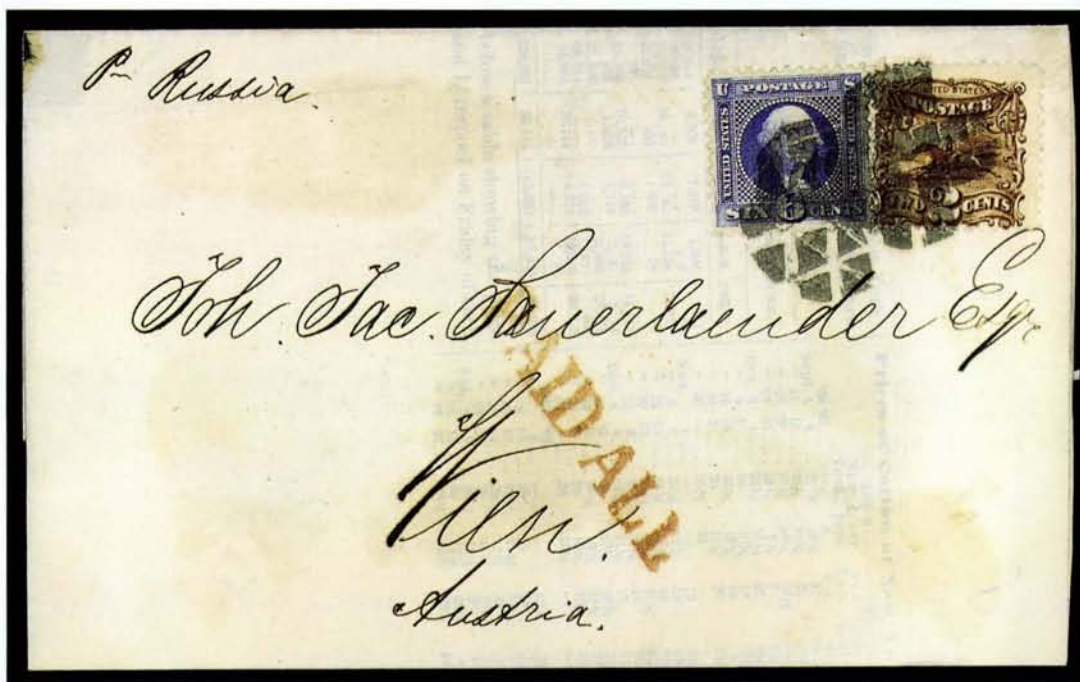 Pr Russia.
U POSTAGE S
UNITED STATES
SIX 6 CENTS
UNITED STATES
POSTAGE
TWO 2 CENTS
Joh. Jac. Sauerlaender Esqr.
PAID ALL
Wien.
Austria.